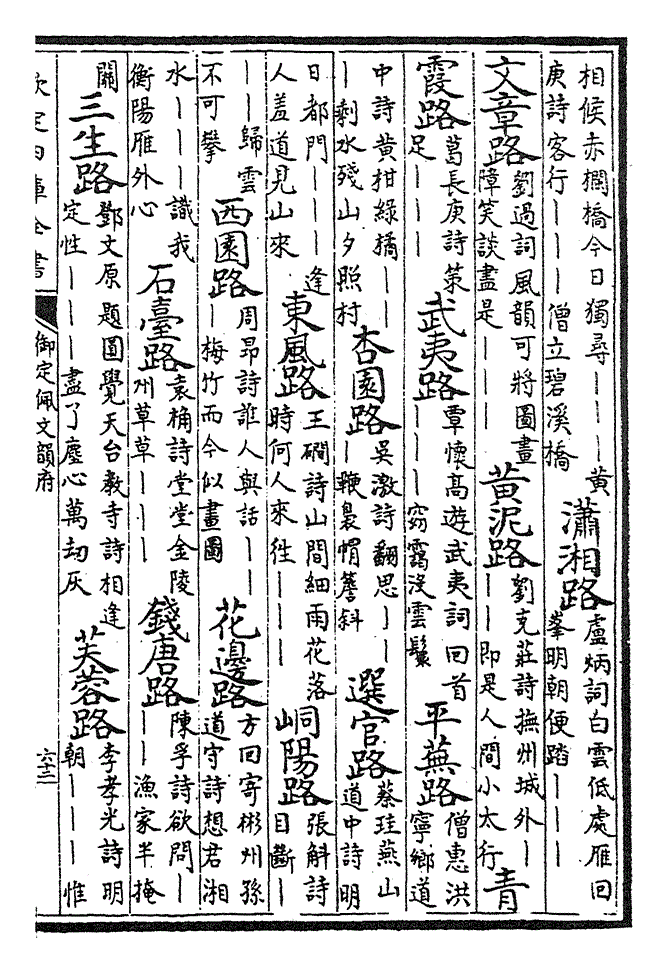 相候赤欄橋今日獨尋｜｜｜黃庚詩客行｜｜｜僧立碧溪橋 瀟湘路 盧炳詞白雲低處雁回峯明朝便踏｜｜｜
文章路 劉過詞風韻可將圖畫障笑談盡是｜｜｜ 黃泥路 劉克莊詩撫州城外｜｜｜即是人間小太行 青
霞路 葛長庚詩策足｜｜ 武夷路 覃懷高遊武夷詞回首｜｜｜窈靄沒雲鬟 平蕪路 僧惠洪寧鄉道
中詩黃柑綠橘｜｜｜剩水殘山夕照村 杏園路 吳激詩翻思｜｜｜鞭裊帽簷斜 選官路 蔡珪燕山道中詩明
日都門｜｜｜逢人羞道見山來 東風路 王磵詩山間細雨花落時何人來往｜｜｜ 峒陽路 張斛詩目斷｜
｜｜歸雲不可攀 西園路 周昂詩誰人與話｜｜｜梅竹而今似畫圖 花邊路 方回寄彬州孫道守詩想君湘
水｜｜｜識我衡陽雁外心 石臺路 袁桷詩堂堂金陵州草草｜｜｜ 錢唐路 陳孚詩欲問｜｜｜漁家半掩
關 三生路 鄧文原題圓覺天台教寺詩相逢定性｜｜｜盡了塵心萬劫灰 芙蓉路 李孝光詩明朝｜｜｜惟
欽定四庫全書
御定佩文韻府
六十三